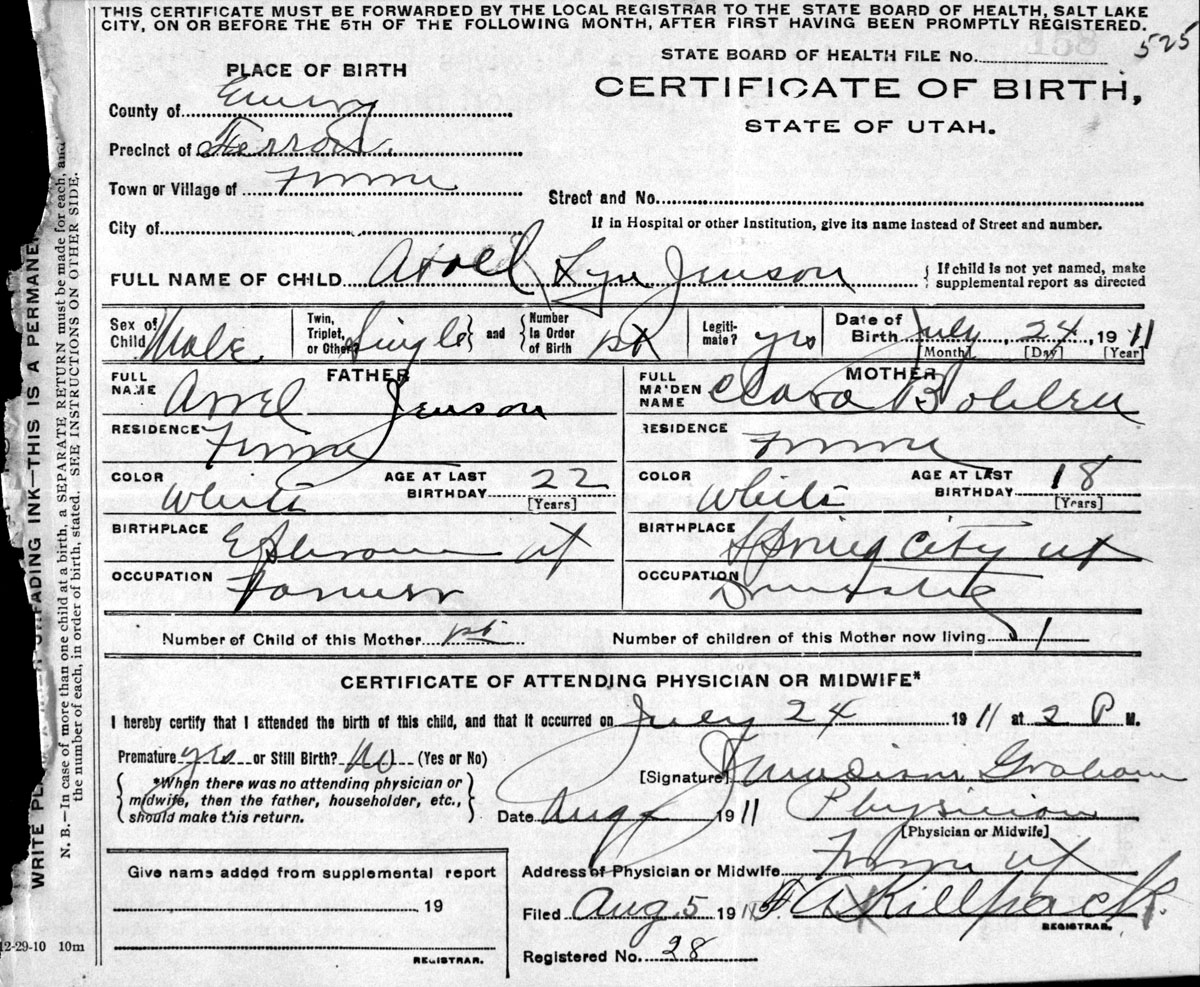 THIS CERTIFICATE MUST BE FORWARDED BY THE LOCAL REGISTRAR TO THE STATE BOARD OF HEALTH, SALT LAKE
CITY, ON OR BEFORE THE 5TH OF THE FOLLOWING MONTH, AFTER FIRST HAVING BEEN PROMPTLY REGISTERED.
525
STATE BOARD OF HEALTH FILE No.
PLACE OF BIRTH
CERTIFICATE OF BIRTH,
STATE OF UTAH.
County of Emery
Precinct of Ferron
Town or Village of Ferron
Street and No.
City of
If in Hospital or other Institution, give its name instead of Street and number.
FULL NAME OF CHILD Lyn Jenson
If child is not yet named, make
supplemental report as directed
Sex of Child Male
Twin, Triplet, or Other? Single and Number In Order of Birth 1st
Legiti- mate? yes
Date of Birth July 24 1911
[Month] [Day] [Year]
FATHER
FULL NAME Arvel Jenson
MOTHER
FULL MAIDEN NAME Clara
RESIDENCE Ferron
RESIDENCE Ferron
COLOR White AGE AT LAST BIRTHDAY 22
[Years]
COLOR White AGE AT LAST BIRTHDAY 18
[Years]
BIRTHPLACE Ephraim ut
BIRTHPLACE Spring City ut
OCCUPATION Farmer
OCCUPATION Domestic
Number of Child of this Mother 1st
Number of children of this Mother now living 1
CERTIFICATE OF ATTENDING PHYSICIAN OR MIDWIFE*
I hereby certify that I attended the birth of this child, and that it occurred on July 24 1911 at 2 P M.
Premature yes or Still Birth? No (Yes or No)
*When there was no attending physician or
midwife, then the father, householder, etc.,
should make this return.
[Signature] Graham
Date Aug 1911 Physician
[Physician or Midwife]
Address of Physician or Midwife Ferron ut
Filed Aug 5 1911 Killpack
REGISTRAR.
Registered No. 28
Give name added from supplemental report
19
REGISTRAR.
12-29-10 10m
N. B.—In case of more than one child at a birth, a SEPARATE RETURN must be made for each, and
the number of each, in order of birth, stated. SEE INSTRUCTIONS ON OTHER SIDE.
FADING INK—THIS IS A PERMANE